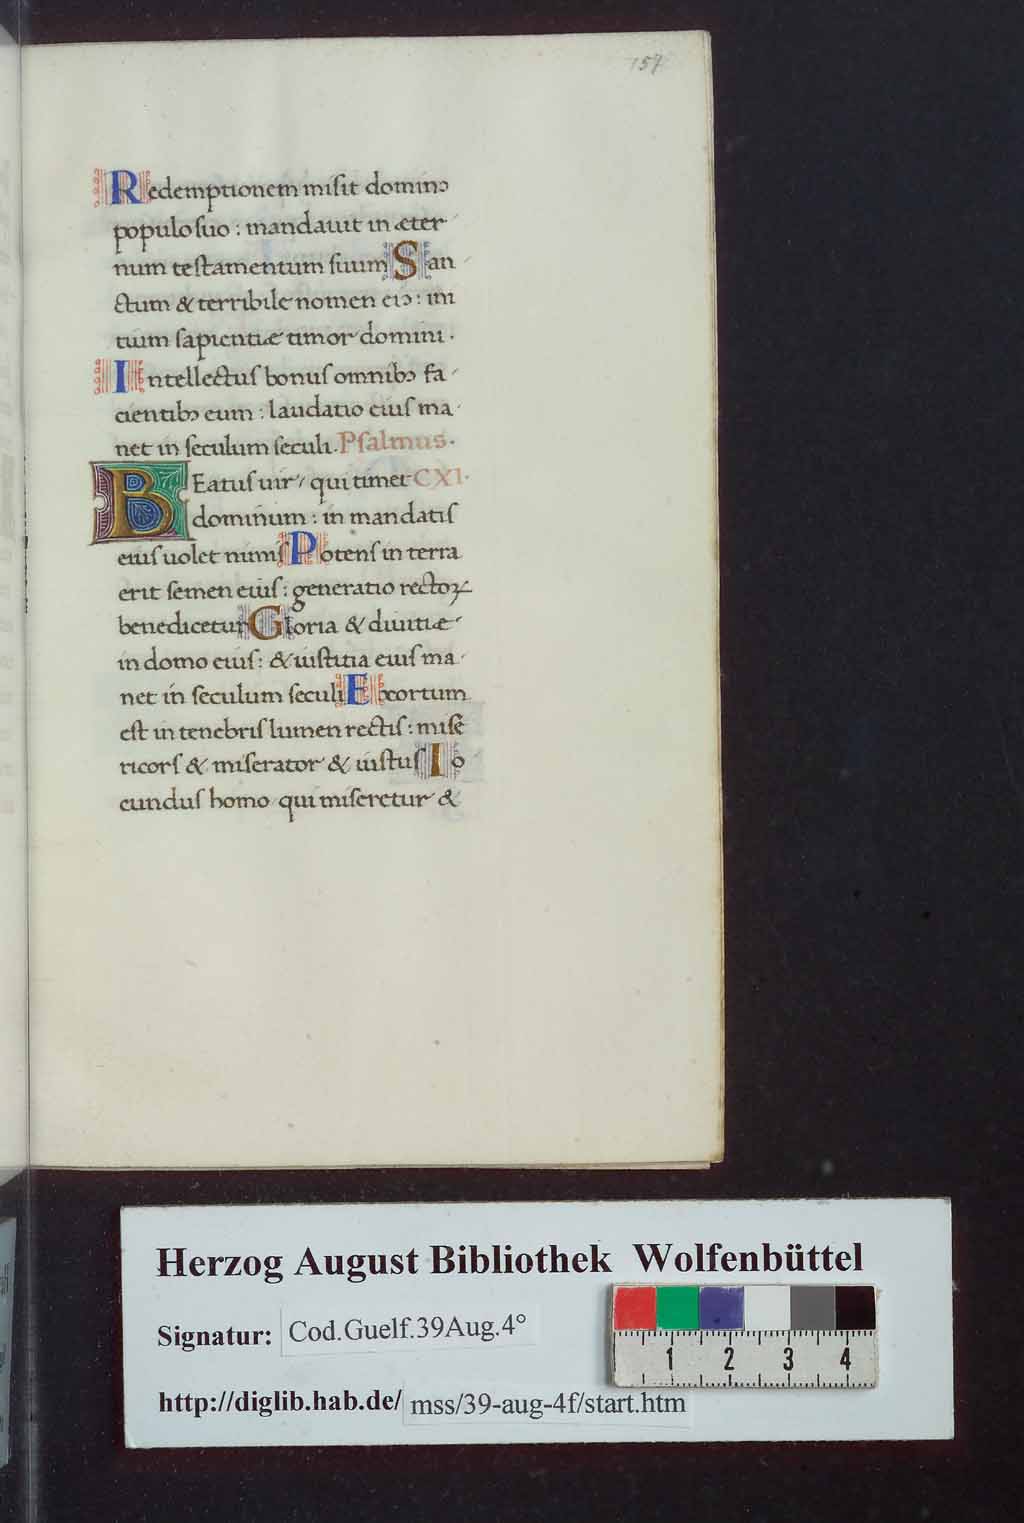 157
Redemptionem misit dominꝰ
populo suo : mandauit in æter
num testamentum suum San
ctum & terribile nomen eiꝰ : ini
tium sapientiæ timor domini .
Intellectus bonus omnibꝰ fa
cientibꝰ eum : laudatio eius ma
net in seculum seculi . Psalmus .
BEatus uir / qui timet CXI .
dominum : in mandatis
eius uolet nimis Potens in terra
erit semen eius : generatio rectoꝝ
benedicetur Gloria & diuitiæ
in domo eius : & iustitia eius ma
net in seculum seculi Exortum
est in tenebris lumen rectis : mise
ricors & miserator & iustus Io
cundus homo qui miseretur &
Herzog August Bibliothek Wolfenbüttel
Signatur: Cod.Guelf.39Aug.4°
http://diglib.hab.de/ mss/39-aug-4f/start.htm
1 2 3 4